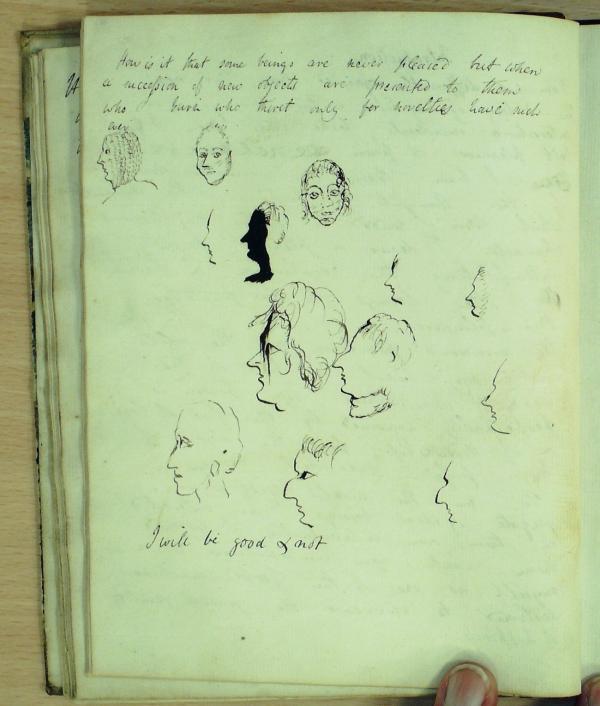 How is it that some beings are never pleased but when
a succession of new objects are presented to them
who burn who thirst only for novelties have such
ever
I will be good & not